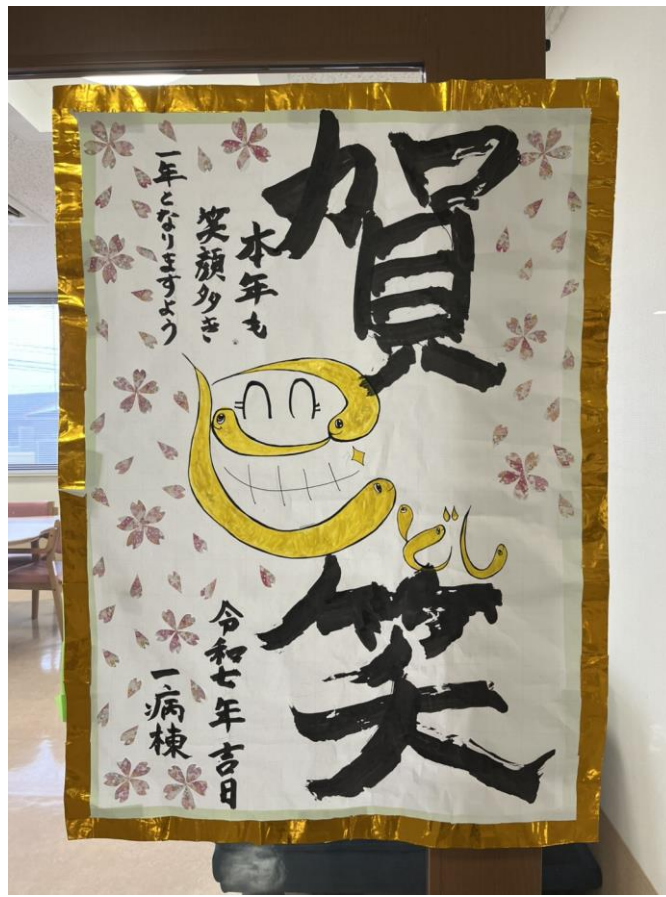 賀
笑
巳どし
本年も
笑顔多き
一年となりますよう
令和七年吉日
一病棟